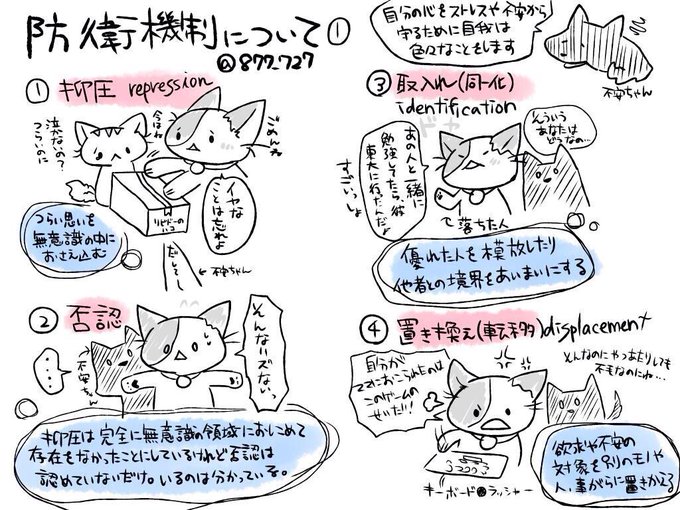 防衛機制について①
@877_727
自分の心をストレスや不安から
守るために自我は
色々なこともします
不安ちゃん
① 抑圧 repression
泣かないの?
つらいのに
今はね
ごめんね
イヤな
ことは忘れよ
リビドーの
ハコ
だしてー
←不安ちゃん
つらい思いを
無意識の中に
おさえ込む
② 否認
そんなハズない、
←不安ちゃん
抑圧は完全に無意識の領域におしこめて
存在をなかったことにしているけれど否認は
認めていないだけ。いるのは分かっている。
③ 取入れ(同一化)
identification
あの人と一緒に
勉強してたら、彼
東大に行ったんだよ
すごいっしょ
ドヤ
そういう
あなたは
どうなの…
落ちた人
優れた人を模放したり
他者との境界をあいまいにする
④ 置き換え(転移)displacement
自分が
ママにおこられたのは
このゲームの
せいだ!!
そんなのにやつあたりしても
不毛なのにね…
キーボードクラッシャー
欲求や不安の
対象を別のモノや
人、事がらに置きかえる